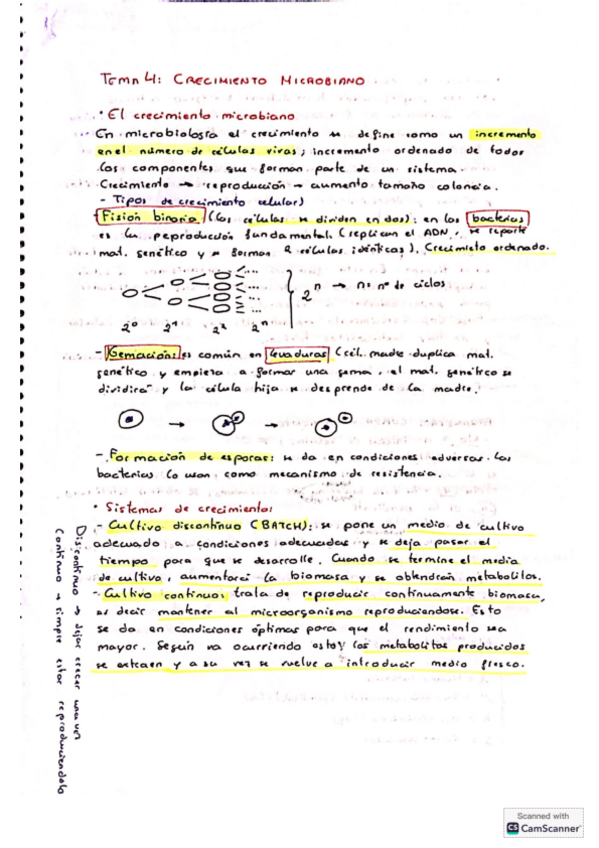 TEMA 4: CRECIMIENTO MICROBIANO
· El crecimiento microbiano
En microbiología el crecimiento se define como un incremento
en el número de células vivas; incremento ordenado de todos
los componentes que forman parte de un sistema.
Crecimiento → reproducción → aumento tamaño colonia.
- Tipos de crecimiento celular)
- Fisión binaria (las células se dividen en dos): en las bacterias
es la reproducción fundamental (replican el ADN, se reparte
mat. genético y se forman 2 células idénticas). Crecimieto ordenado.
2^n → n: nº de ciclos
2^0 2^1 2^2 2^n
- Gemación: es común en levaduras (cél. madre duplica mat.
genético y empieza a formar una gema, el mat. genético se
dividirá y la célula hija se desprende de la madre.
- Formación de esporas: se da en condiciones adversas. Las
bacterias lo usan como mecanismo de resistencia.
· Sistemas de crecimiento:
- Cultivo discontinuo (BATCH): se pone un medio de cultivo
adecuado a condiciones adecuadas y se deja pasar el
tiempo para que se desarrolle. Cuando se termine el medio
de cultivo, aumentará la biomasa y se obtendrán metabolitos.
- Cultivo continuo: trata de reproducir continuamente biomasa,
es decir mantener al microorganismo reproduciendose. Esto
se da en condiciones óptimas para que el rendimiento sea
mayor. Según va ocurriendo esto, los metabolitos producidos
se extraen y a su vez se vuelve a introducir medio fresco.
Discontinuo → dejar crecer una vez
Continuo → simpre estar reproduciendolo
Scanned with
CS CamScanner